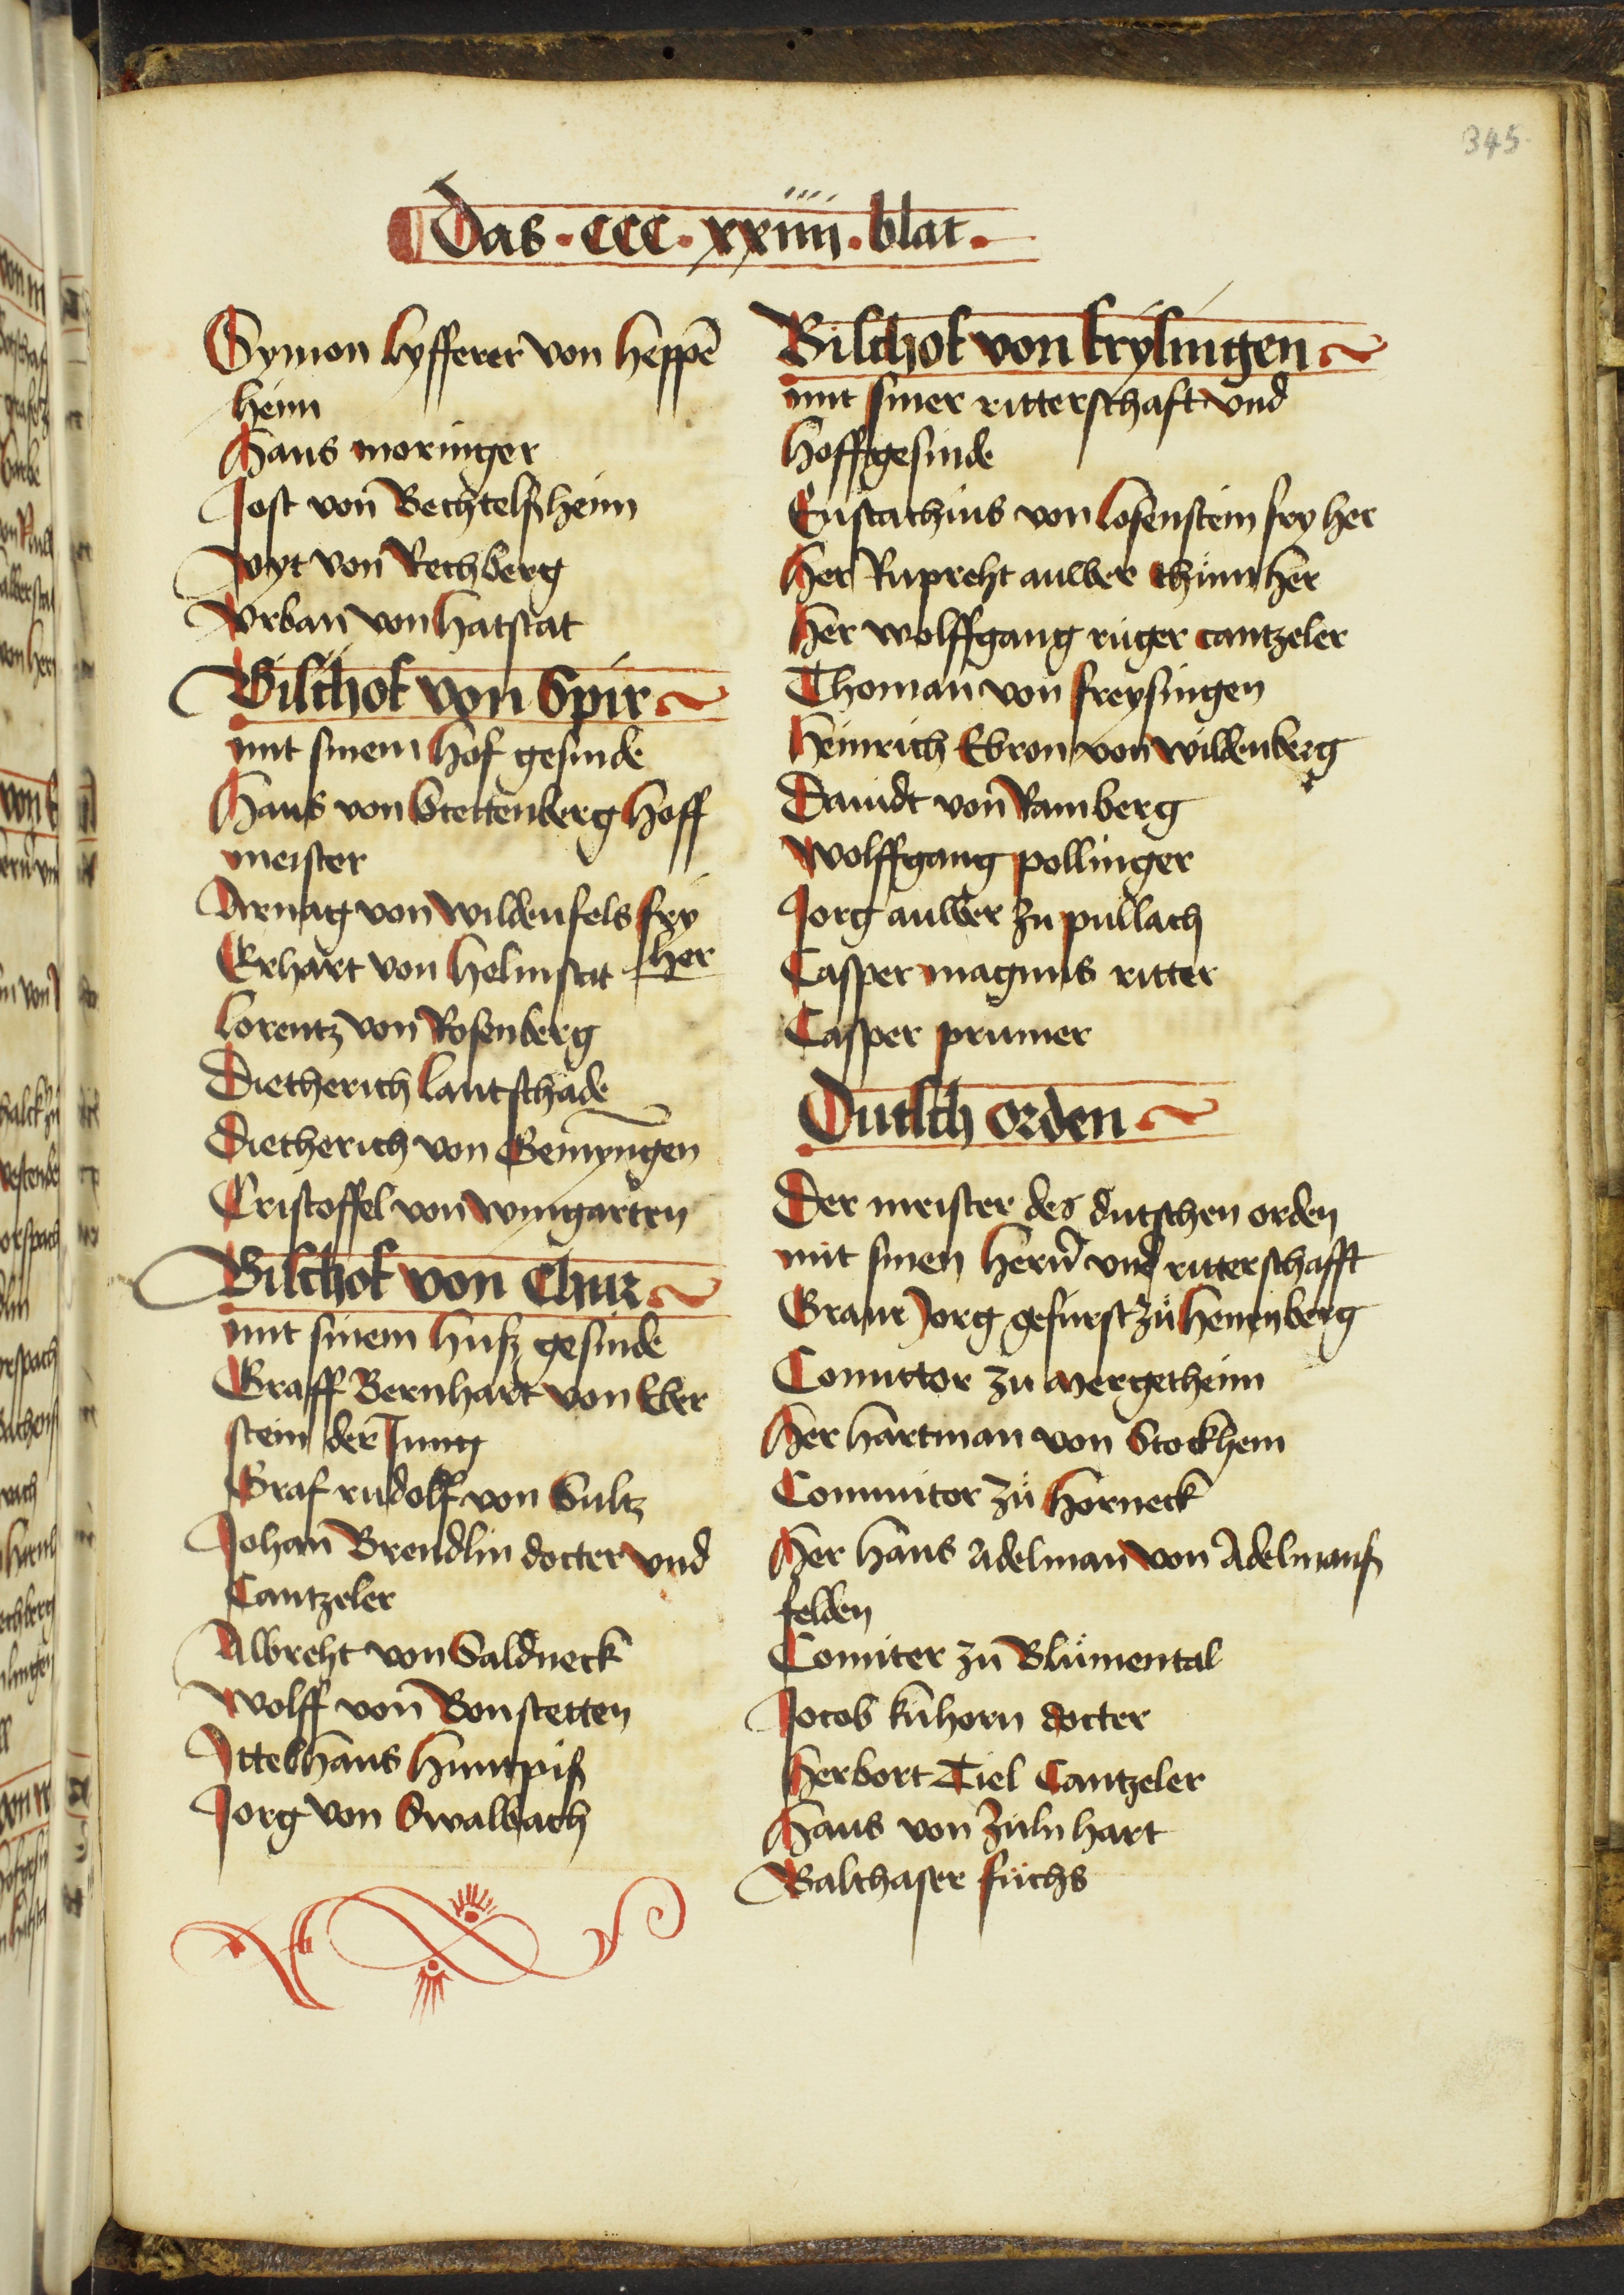 345
Das · CCC · xxiiii · blat ·
Symon lyfferer von heppē
heim
Hans moringer
Jost von Bechtelßheim
Vyt von Rechberg
Vrban von hatstat
Bischof von Spir
mit sinem hof gesinde
Hans von Stettenberg hoff
meister
Arnag von wildenfels fry
her
Erhart von helmstat
lorentz von Rosenberg
Dietherich lantschade
Dietherich von Gemyngen
Cristoffel von wyngarten
Bischof von Chur
mit sinem huß gesinde
Graff Bernhart von Eber
stein der Jung
Graf rudolff von Sultz
Johan Brendlin docter vnd
Cantzeler
Albreht von Saldneck
Wolff von Bonstetten
Ittelhans huntpiß
Jorg von Swalbach
Bischof von frysingen
mit siner ritterschaft vnd
hoffgesinde
Eustachius von losenstein fry her
Her Rupreht auwer thůmher
Her wolffgang rüger cantzeler
Thoman von freysingen
Heinrich Ebron von wildenberg
Dauidt von Ramberg
Wolffgang pollinger
Jorg auwer zu pullach
Casper magnus ritter
Casper prumer
Dutsch orden
Der meister des dutschen orden
mit sinen hern̄ vnd ritterschafft
Graue Jorg gefurst zů hennenberg
Comittor zu Mergetheim
Her hartman von Stockhem
Commitor zů horneck
Her hans Adelman von Adelmanß
felden
Comiter zu Blůmental
Jocob kuhorn docter
Herbort Tiel Cantzeler
Hans von Zuln hart
Balthaser fuchs